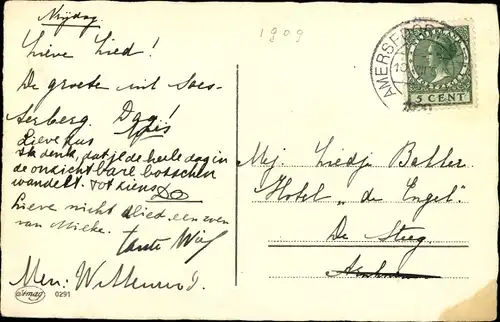 Vrijdag
1909
Lieve Lied!
De groete uit Soes-
terberg. Dag!
Lieve zus
Ik denk, dat je de heele dag in
de onzichtbare bosschen
wandelt. Tot ziens Do
Lieve nicht Lied een
van Mieke. tante
AMERSFOORT
NEDERLAND
5 CENT
Mej. Liedje Bakker
Hotel „de Engel"
De Steeg
Arnhem
0291